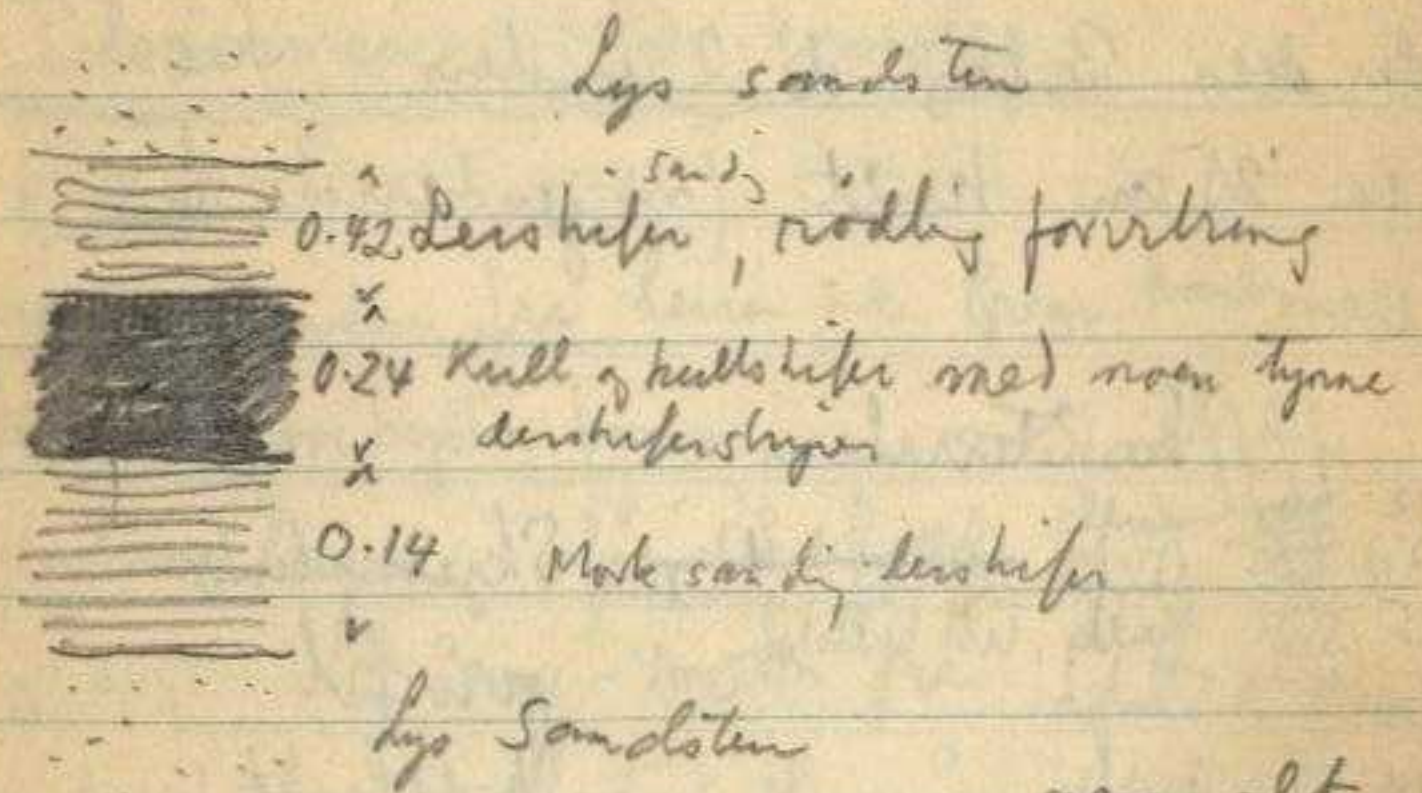 Lys sandsten
sandig
0.42 Lerskifer, rødlig forvitring
0.24 Kull og kullskifer med noen tynne
lerskiferskiver
0.14 Mørk sandig lerskifer
Lys Sandsten